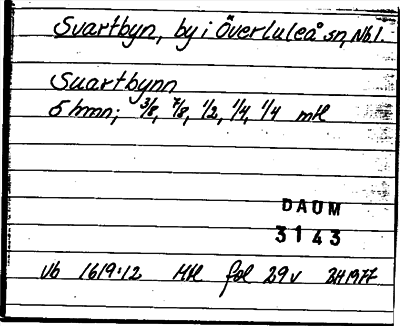 Svartbyn, by i Överluleå sn, Nb.l.
Suartbynn
5 hmn; 3/8, 7/8, 1/2, 1/4, 1/4 mtl
DAUM
3143
Vb 1619:12 Mtl fol 29v 2H1977